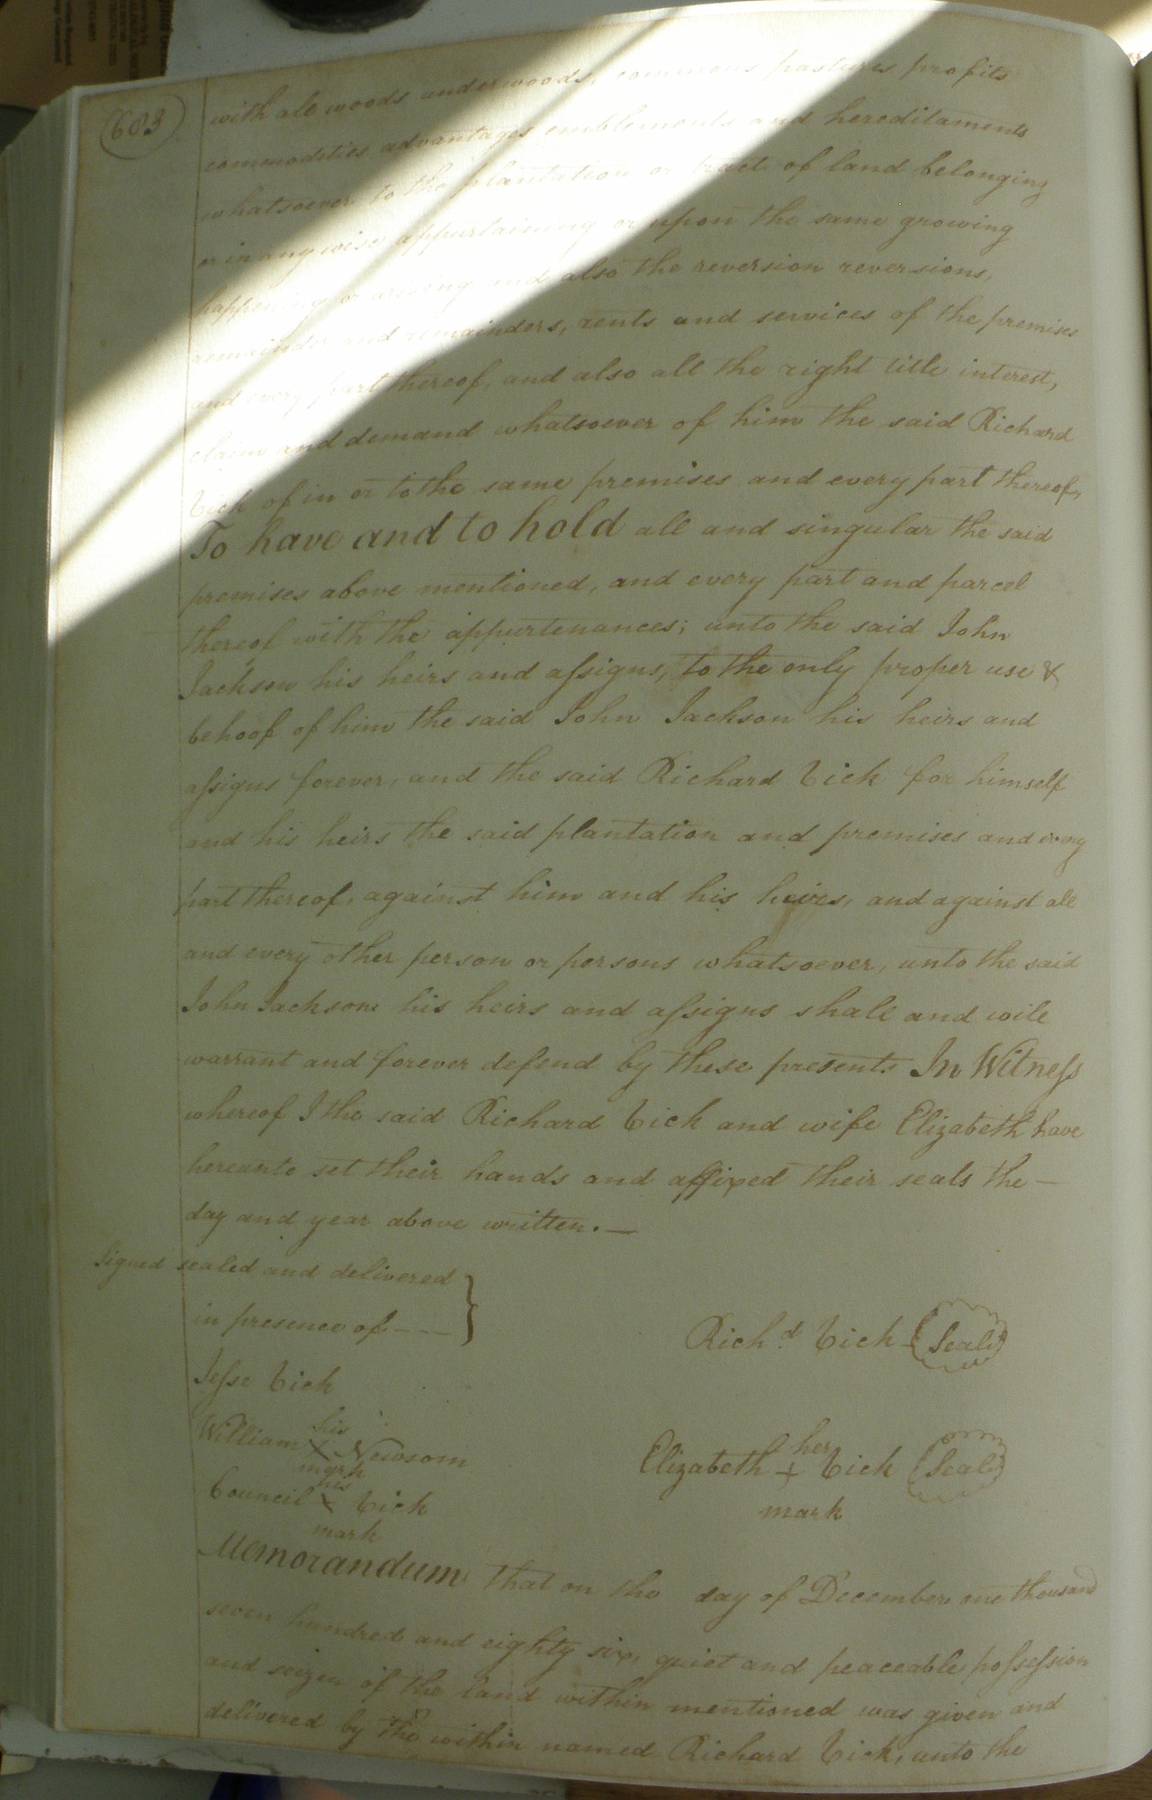 603
with all woods underwoods, commons pastures profits
commodities advantages emblements and hereditaments
whatsoever to the plantation or tract of land belonging
or in any wise appurtaining or upon the same growing
happening or arising and also the reversion reversions,
remainder and remainders, rents and services of the premises
and every part thereof, and also all the right title interest,
claim and demand whatsoever of him the said Richard
Vick of in or to the same premises and every part thereof,
To have and to hold all and singular the said
premises above mentioned, and every part and parcel
thereof with the appurtenances; unto the said John
Jackson his heirs and assigns, to the only proper use &
behoof of him the said John Jackson his heirs and
assigns forever, and the said Richard Vick for himself
and his heirs the said plantation and premises and every
part thereof, against him and his heirs, and against all
and every other person or persons whatsoever, unto the said
John Jackson his heirs and assigns shall and will
warrant and forever defend by these presents In Witness
whereof I the said Richard Vick and wife Elizabeth have
hereunto set their hands and affixed their seals the —
day and year above written. —
Signed sealed and delivered
in presence of - - —
Richd. Vick (Seal)
Jesse Vick
his
William X Newsom
mark
her
Elizabeth + Vick (Seal)
mark
his
Council X Vick
mark
Memorandum that on the day of December one thousand
seven hundred and eighty six, quiet and peaceable possession
and seizen of the land within mentioned was given and
delivered by the within named Richard Vick, unto the